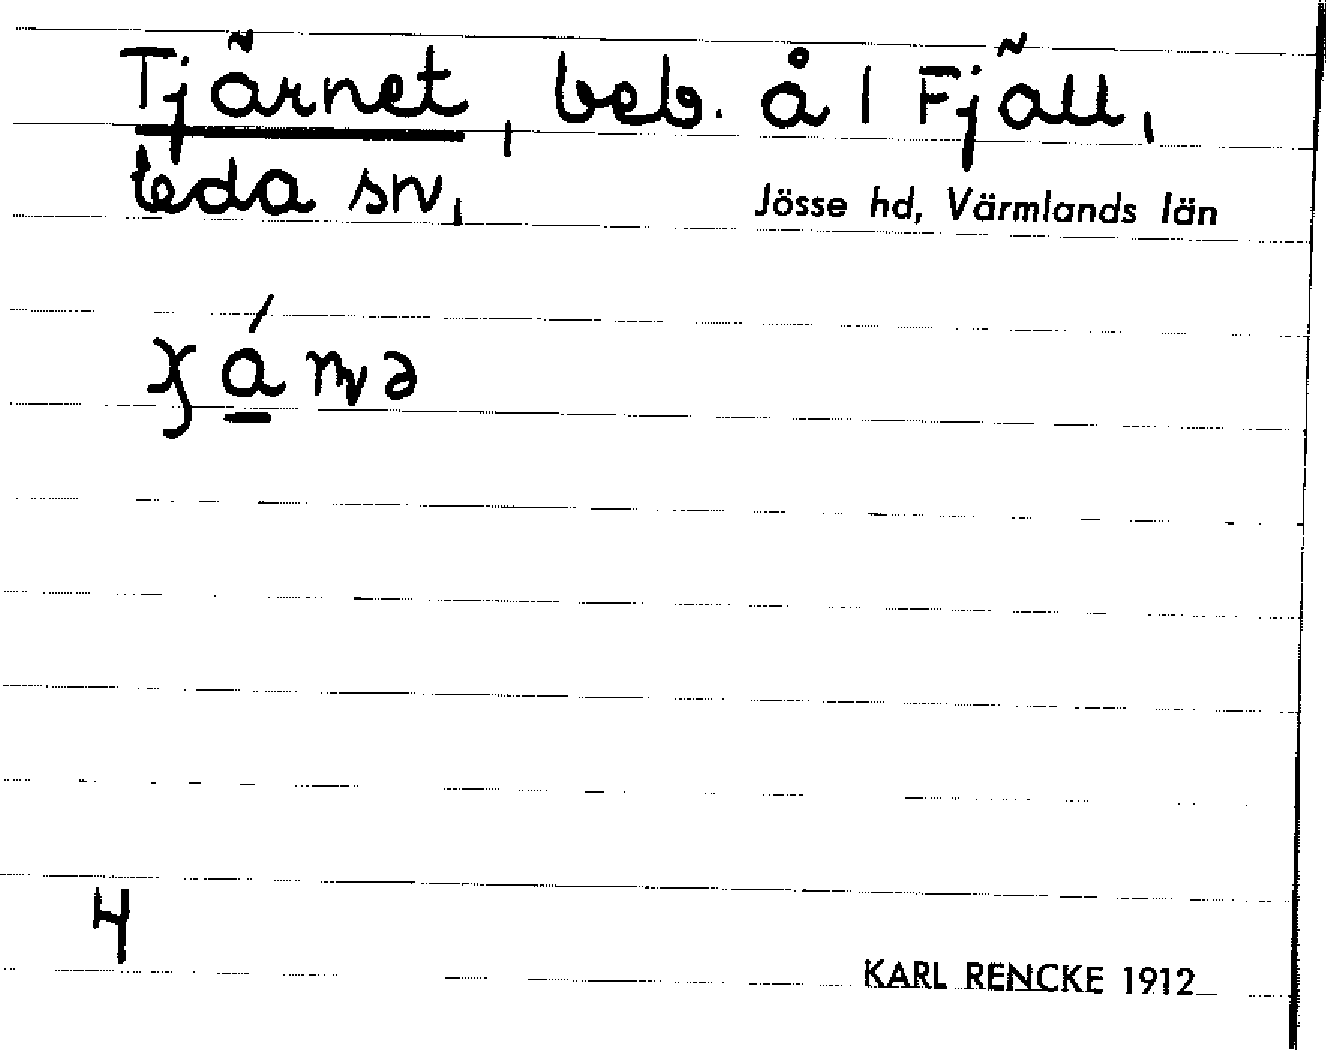 Tjärnet, beb. å 1 Fjäll,
Eda sn,
Jösse hd, Värmlands län
4
KARL RENCKE 1912